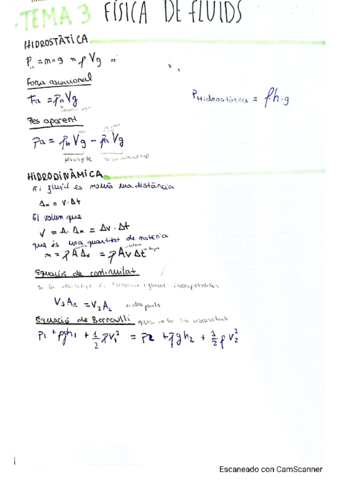 TEMA 3 FÍSICA DE FLUIDS
HIDROSTÀTICA
P = m·g = ρVg
Força ascensional
Fa = ρVg
Pes aparent
Pa = ρVg - ρVg
P Hidrostàtica = ρh·g
HIDRODINÀMICA
El fluid es mourà una distància
Δx = v·Δt
El volum que
V = A·Δx = Av·Δt
que és una quantitat de matèria
m = ρAΔx = ρAvΔt
Equació de continuïtat
V₁A₁ = V₂A₂
Equació de Bernoulli
P₁ + ρgh₁ + 1/2 ρv₁² = P₂ + ρgh₂ + 1/2 ρv₂²
Escaneado con CamScanner